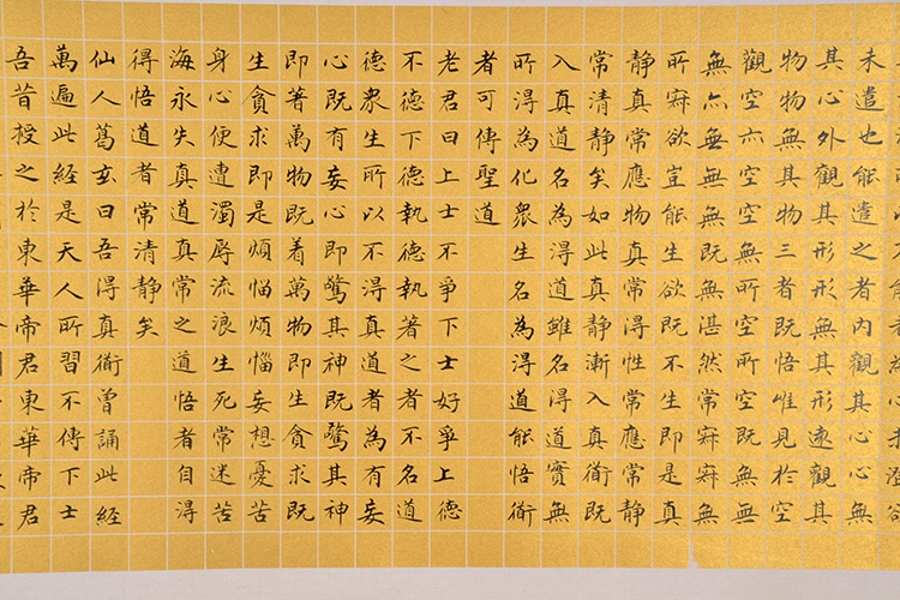 未遣也能遣之者内觀其心心無
其心外觀其形形無其形遠觀其
物物無其物三者既悟唯見於空
觀空亦空空無所空所空既無無
無亦無無無既無湛然常寂寂無
所寂欲豈能生欲既不生即是真
静真常應物真常得性常應常静
常清静矣如此真静漸入真衟既
入真道名為得道雖名得道實無
所得為化衆生名為得道能悟衟
者可傳聖道
老君曰上士不爭下士好爭上德
不德下德執德執著之者不名道
德衆生所以不得真道者為有妄
心既有妄心即驚其神既驚其神
即著萬物既着萬物即生貪求既
生貪求即是煩惱煩惱妄想憂苦
身心便遭濁辱流浪生死常迷苦
海永失真道真常之道悟者自得
得悟道者常清静矣
仙人葛玄曰吾得真衟曾誦此経
萬遍此経是天人所習不傳下士
吾昔授之於東華帝君東華帝君